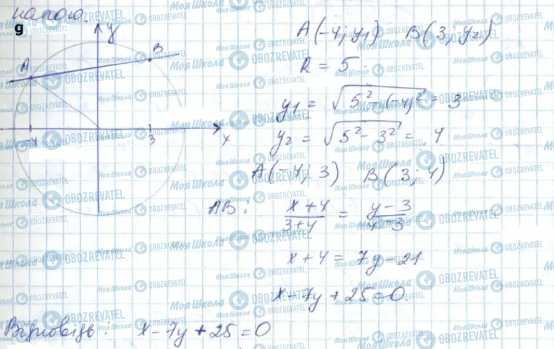 9
y
A
B
-4
3
x
A(-4; y₁) B(3; y₂)
R = 5
y₁ = √(5² - (-4)²) = 3
y₂ = √(5² - 3²) = 4
A(-4; 3) B(3; 4)
AB: (x+4)/(3+4) = (y-3)/(4-3)
x + 4 = 7y - 21
x - 7y + 25 = 0
Відповідь: x - 7y + 25 = 0
Моя Школа OBOZREVATEL